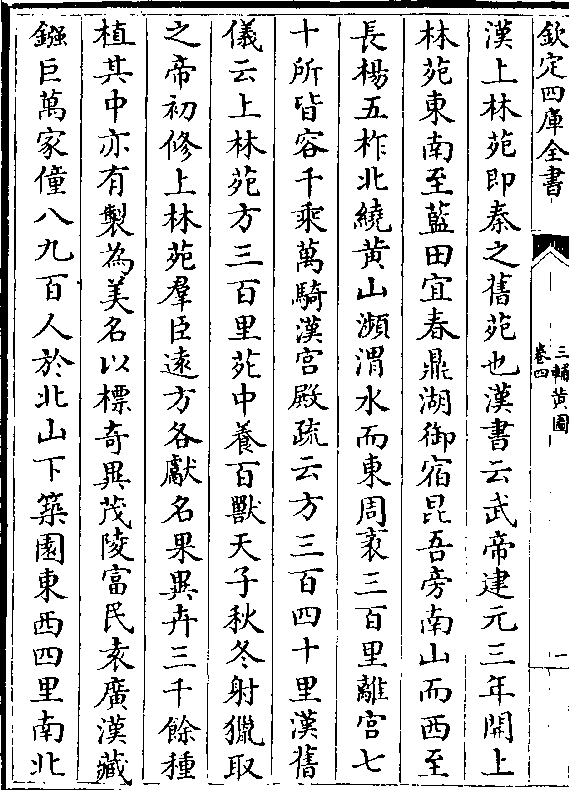 欽定四庫全書
三輔黃圖
卷四
一
漢上林苑即秦之舊苑也漢書云武帝建元三年開上
林苑東南至藍田宜春鼎湖御宿昆吾旁南山而西至
長楊五柞北繞黃山瀕渭水而東周袤三百里離宮七
十所皆容千乘萬騎漢宮殿疏云方三百四十里漢舊
儀云上林苑方三百里苑中養百獸天子秋冬射獵取
之帝初修上林苑羣臣遠方各獻名果異卉三千餘種
植其中亦有製為美名以標奇異茂陵富民袁廣漢藏
鏹巨萬家僮八九百人於北山下築園東西四里南北